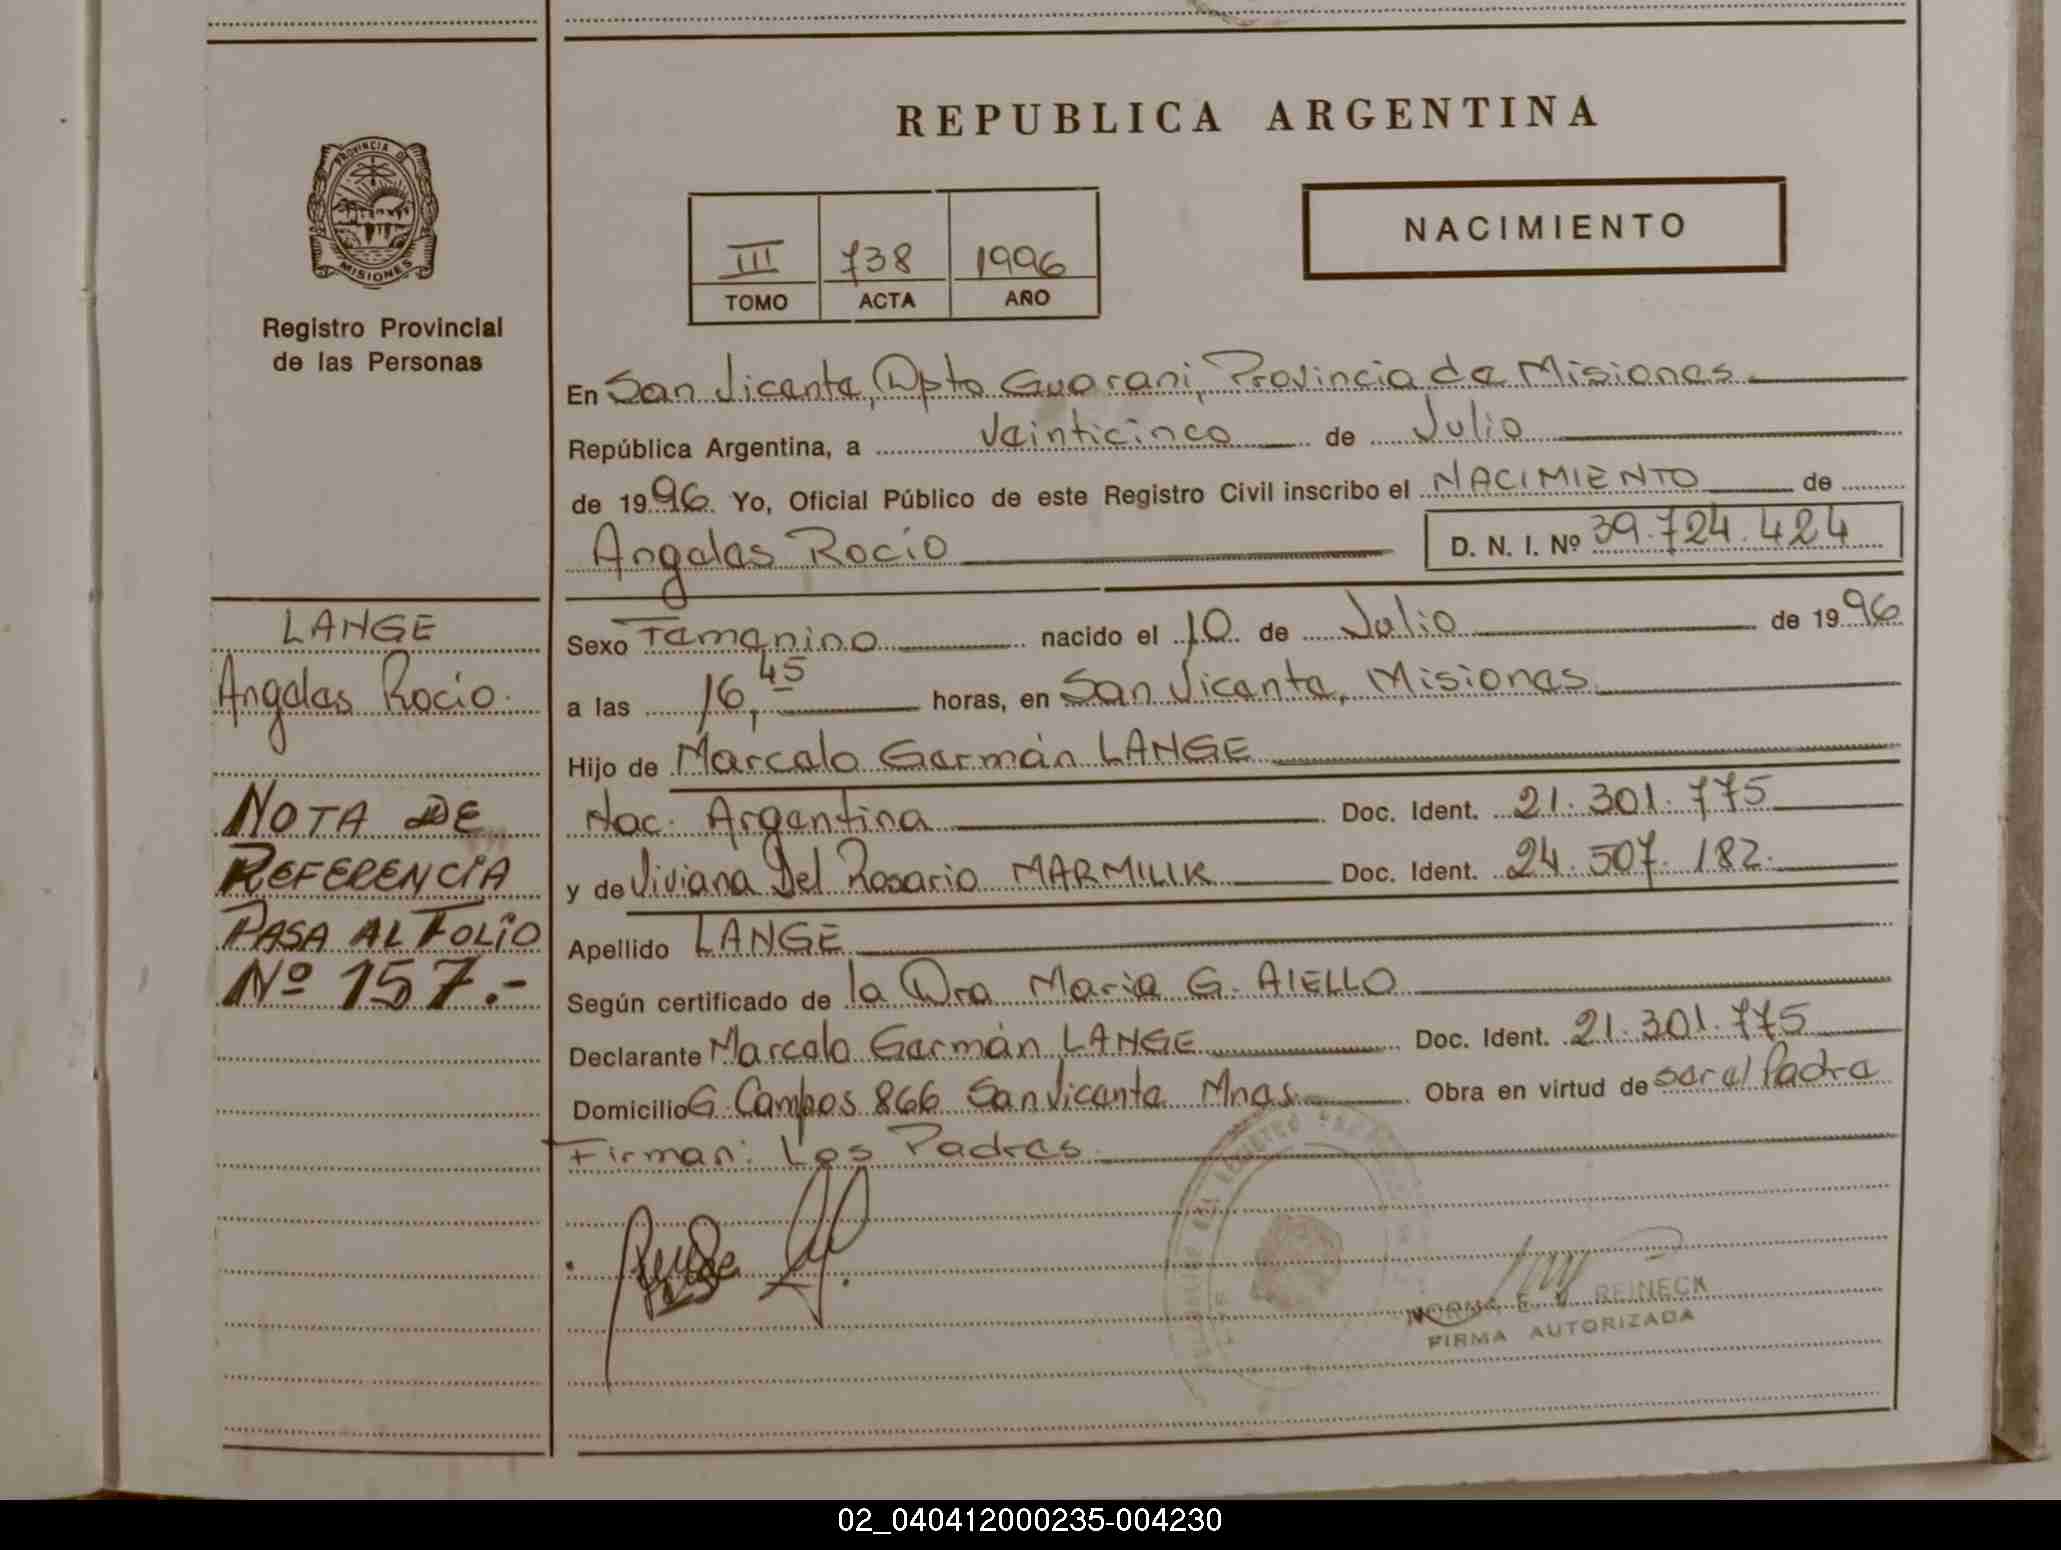 REPUBLICA ARGENTINA
PROVINCIA DE
MISIONES
Registro Provincial
de las Personas
III 738 1996
TOMO ACTA AÑO
NACIMIENTO
En San Vicente, Dpto Guarani, Provincia de Misiones
República Argentina, a veinticinco de Julio
de 1996 Yo, Oficial Público de este Registro Civil inscribo el NACIMIENTO de
Angeles Rocio D. N. I. Nº 39.724.424
LANGE
Angeles Rocio.
NOTA DE
REFERENCIA
PASA AL FOLIO
Nº 157.-
Sexo Femenino nacido el 10 de Julio de 1996
a las 16,45 horas, en San Vicente, Misiones
Hijo de Marcelo Germán LANGE
Nac. Argentina Doc. Ident. 21.301.775
y de Viviana Del Rosario MARMILIK Doc. Ident. 24.507.182.
Apellido LANGE
Según certificado de la Dra Maria G. AIELLO
Declarante Marcelo Germán LANGE Doc. Ident. 21.301.775
Domicilio G. Campos 866 San Vicente Mnes. Obra en virtud de ser el Padre
Firman: Los Padres
NORMA E. V. REINECK
FIRMA AUTORIZADA
02_040412000235-004230